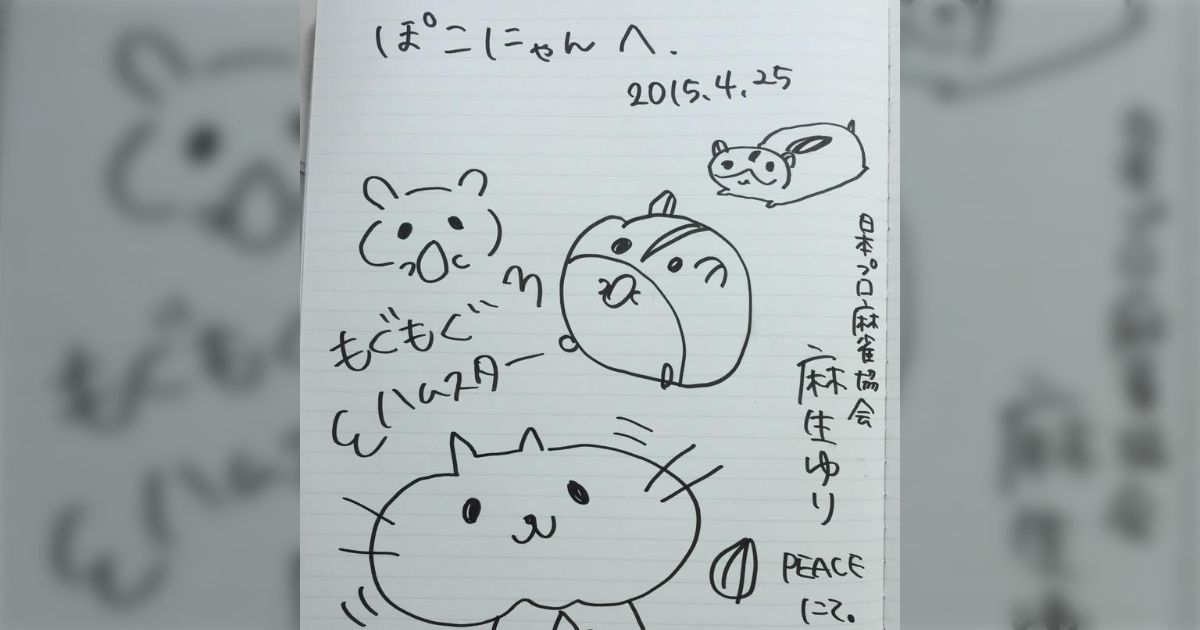 ぽこにゃんへ.
2015.4.25
もぐもぐ
ハムスター
日本プロ麻雀協会
麻生ゆり
PEACE
にて。